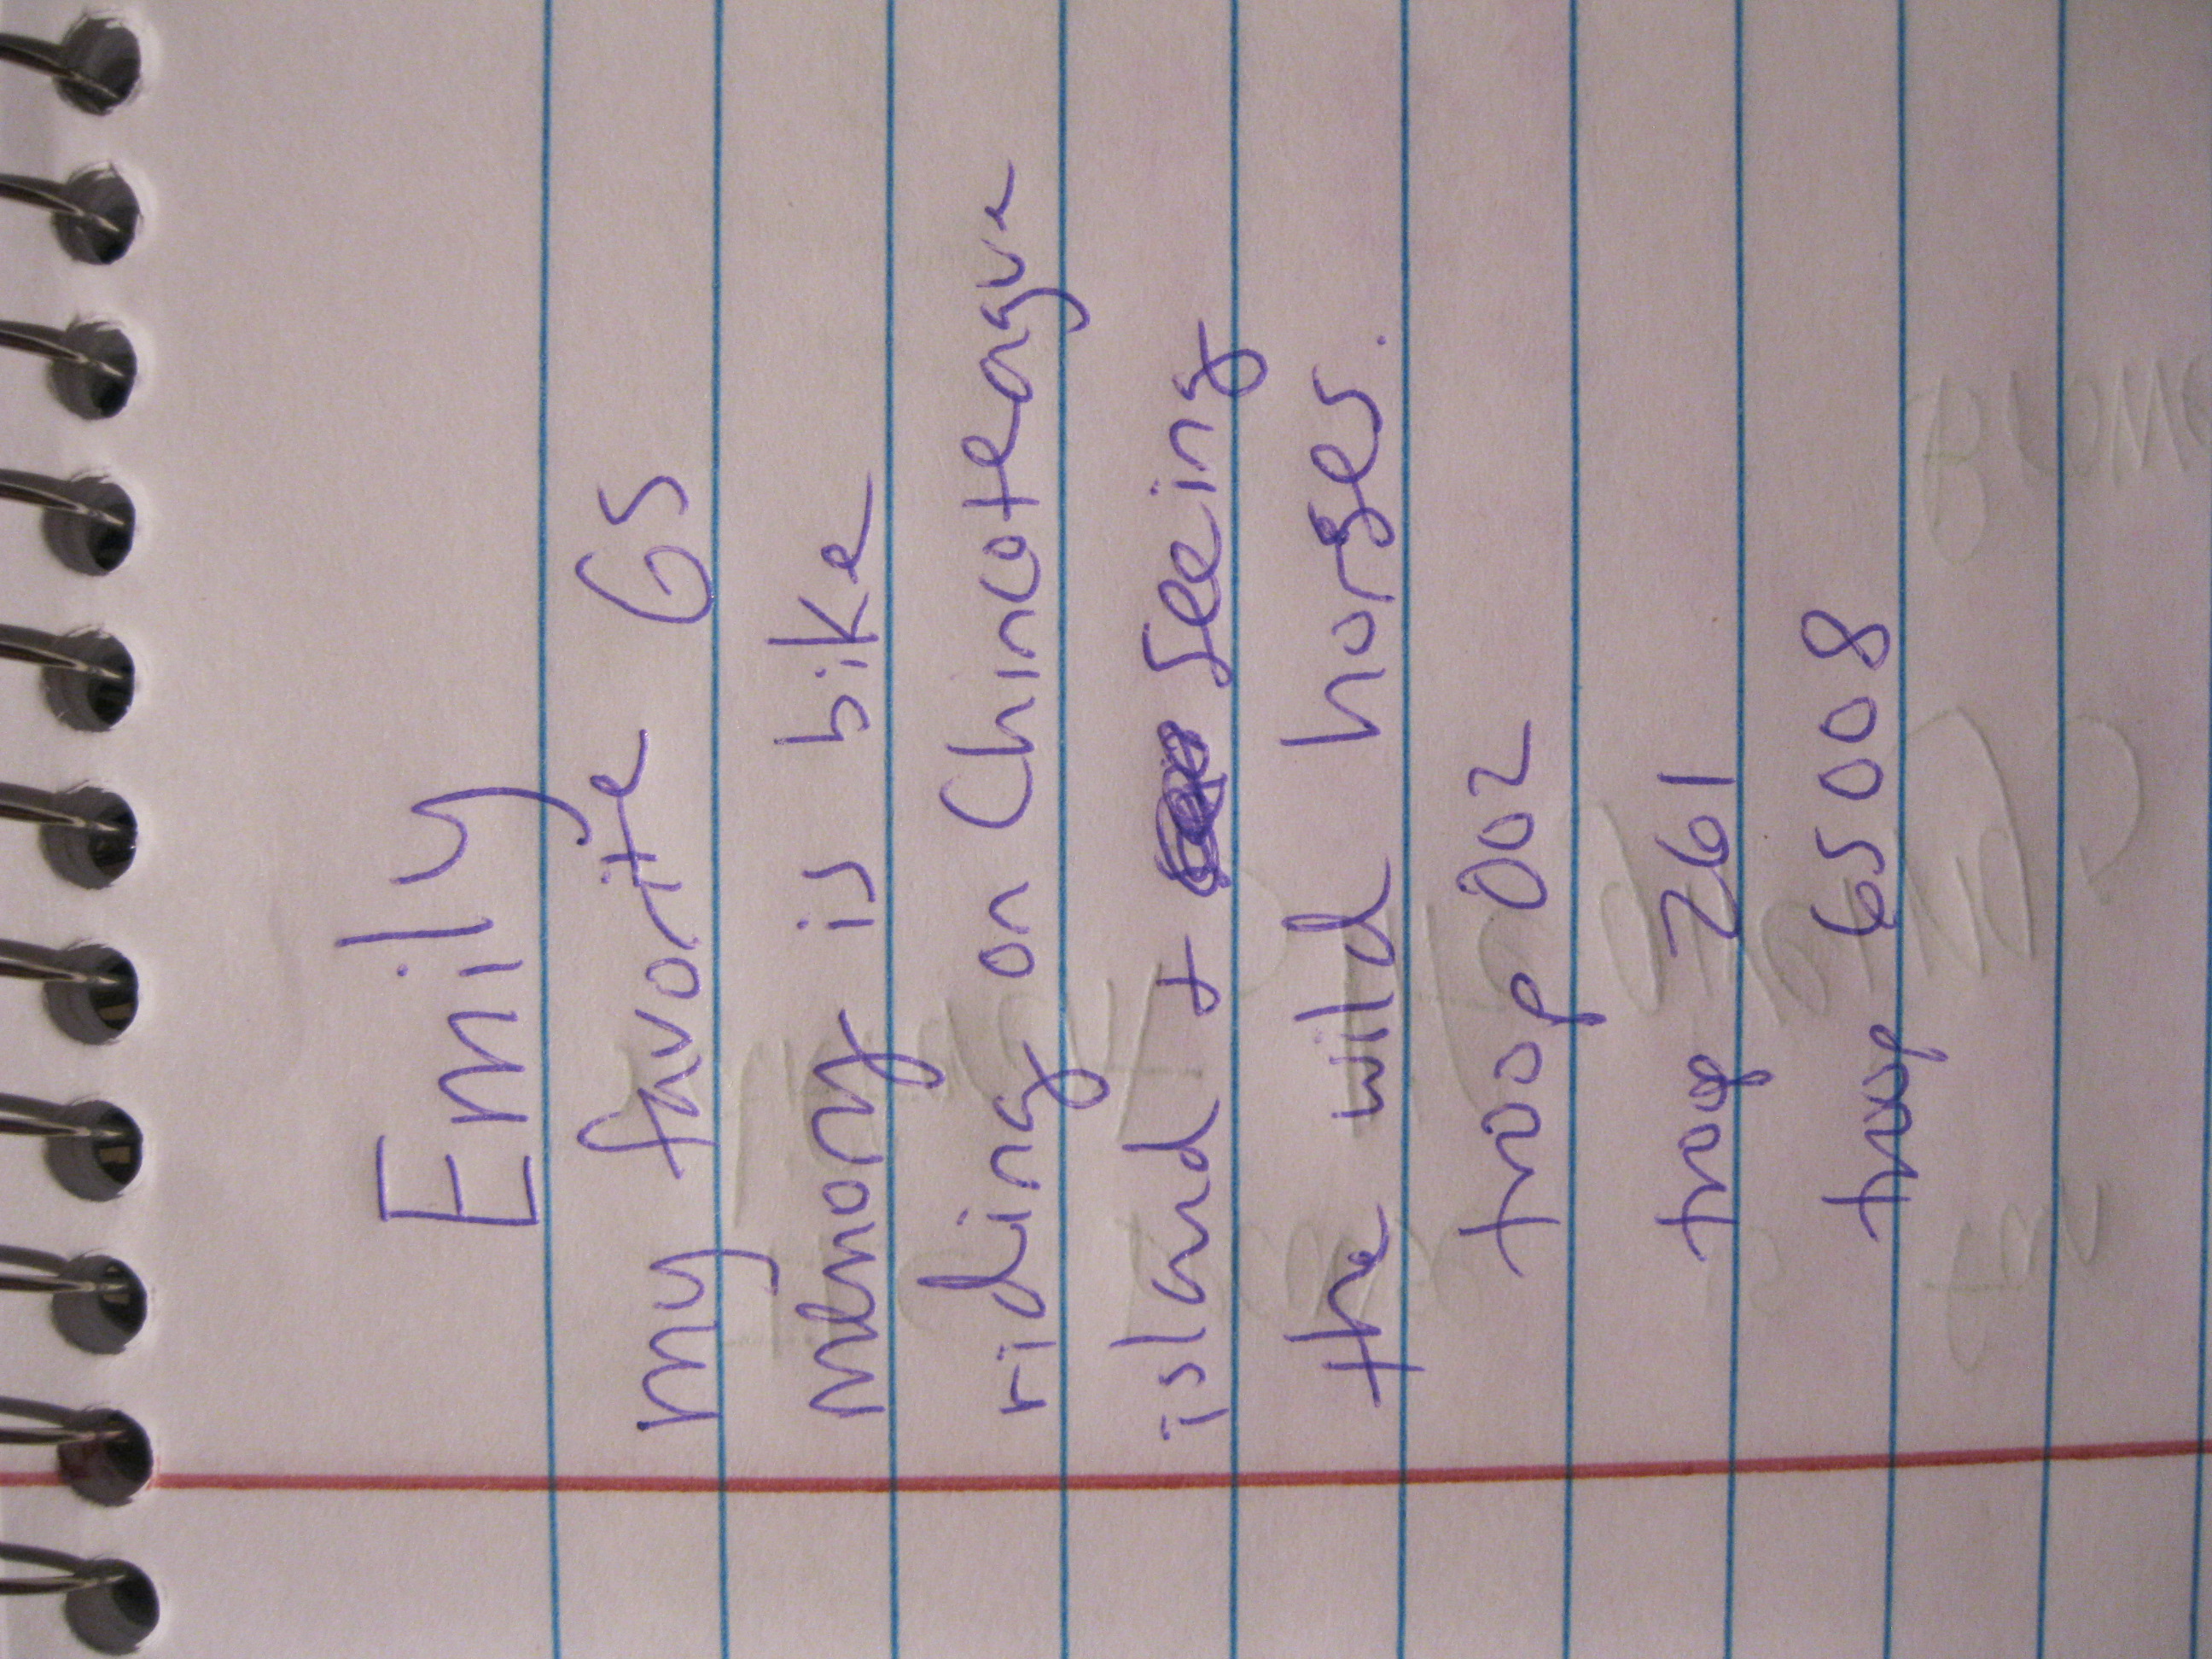 Emily
my favorite GS
memory is bike
riding on Chincoteague
island + seeing
the wild horses.
troop 002
troop 261
troop 65008